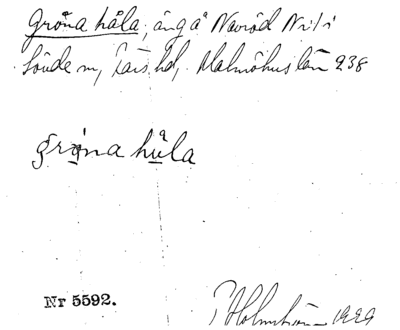 Gröna håla, äng å Navröd Nr 1 i
Södde m, Färs hd, Malmöhus län 238
gröna hula
Nr 5592.
1929